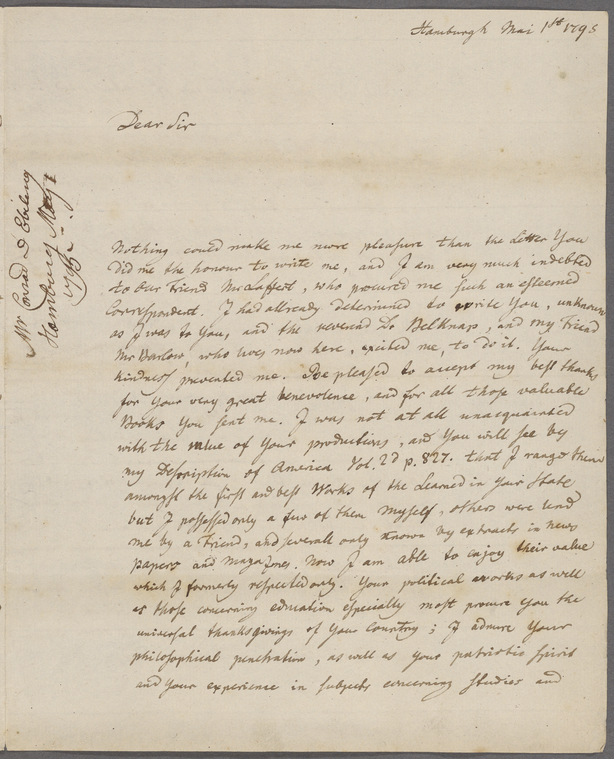 Hamburgh Mai 1st 1795
Dear Sir
Mr Conrad D Ebeling
Hamburg May 1
1795
Nothing could make me more pleasure than the Letter You
did me the honour to write me, and I am very much indebted
to our Friend , who procured me such an esteemed
Correspondent. I had allready determined to write You, unknown
as I was to You, and the reverend Dr Belknap, and my Friend
Mr Barlow, who lives now here, excited me, to do it. Your
kindness prevented me. Be pleased to accept my best thanks
for Your very great benevolence, and for all those valuable
Books You sent me. I was not at all unacquainted
with the value of Your productions, and You will see by
my Description of America Vol. 2d p. 827. that I range them
amongst the first and best Works of the Learned in Your State
but I possessed only a few of them myself, others were lend
me by a Friend, and severall only known by extracts in news
papers and magazines. Now I am able to enjoy their value
which I formerly respected only. Your political works as well
as those concerning education especially most procure You the
universal thanksgivings of Your Country; I admire Your
philosophical penetration, as well as Your patriotic Spirit
and Your experience in subjects concerning Studies and